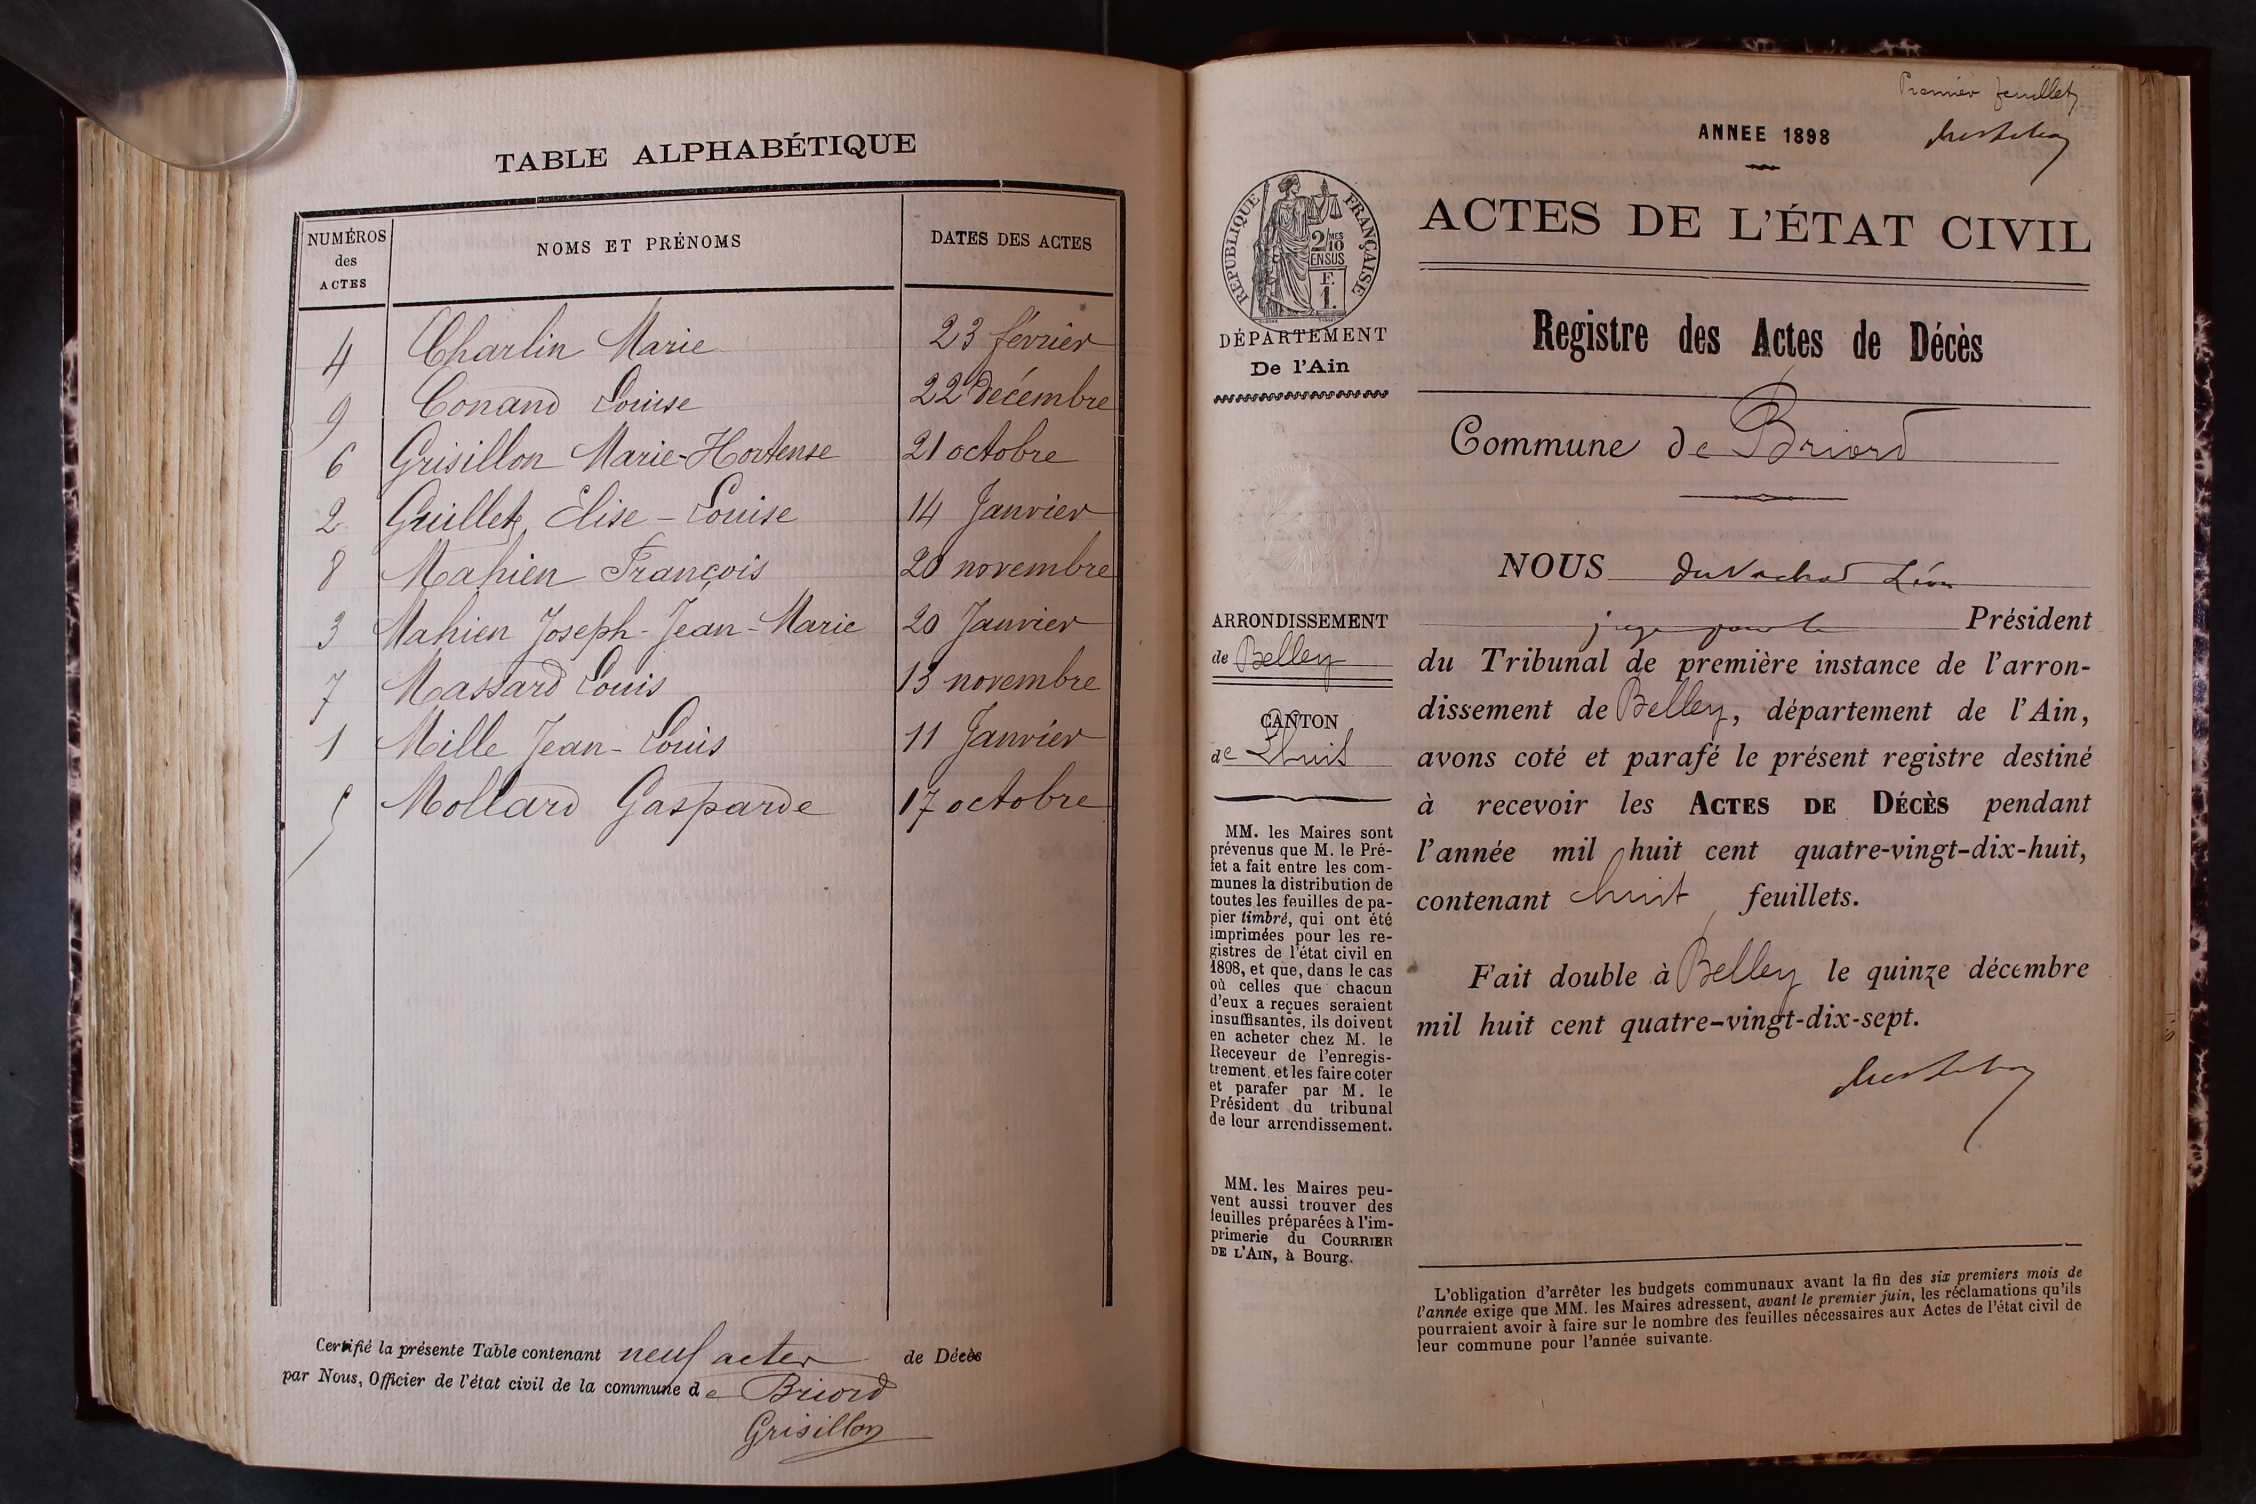 TABLE ALPHABÉTIQUE
NUMÉROS des ACTES
NOMS ET PRÉNOMS
DATES DES ACTES
4 Charlin Marie 23 février
9 Conand Louise 22 décembre
6 Grisillon Marie-Hortense 21 octobre
2 Guillet Elise-Louise 14 Janvier
8 Mahien François 20 novembre
3 Mahien Joseph-Jean-Marie 20 Janvier
7 Massard Louis 13 novembre
1 Mille Jean-Louis 11 Janvier
5 Mollard Gasparde 17 octobre
Certifié la présente Table contenant neuf actes de Décès
par Nous, Officier de l'état civil de la commune de Briord
Grisillon
Premier feuillet
ANNEE 1898
RÉPUBLIQUE FRANÇAISE
2/MES 10
EN SUS
F.
1.
DÉPARTEMENT
De l'Ain
ARRONDISSEMENT
de Belley
CANTON
de Lhuis
MM. les Maires sont
prévenus que M. le Pré-
fet a fait entre les com-
munes la distribution de
toutes les feuilles de pa-
pier timbré, qui ont été
imprimées pour les re-
gistres de l'état civil en
1898, et que, dans le cas
où celles que chacun
d'eux a reçues seraient
insuffisantes, ils doivent
en acheter chez M. le
Receveur de l'enregis-
trement et les faire coter
et parafer par M. le
Président du tribunal
de leur arrondissement.
MM. les Maires peu-
vent aussi trouver des
feuilles préparées à l'im-
primerie du COURRIER
DE L'AIN, à Bourg.
ACTES DE L'ÉTAT CIVIL
Registre des Actes de Décès
Commune de Briord
NOUS Léon
juge pour le Président
du Tribunal de première instance de l'arron-
dissement de Belley, département de l'Ain,
avons coté et parafé le présent registre destiné
à recevoir les ACTES DE DÉCÈS pendant
l'année mil huit cent quatre-vingt-dix-huit,
contenant huit feuillets.
Fait double à Belley le quinze décembre
mil huit cent quatre-vingt-dix-sept.
L'obligation d'arrêter les budgets communaux avant la fin des six premiers mois de
l'année exige que MM. les Maires adressent, avant le premier juin, les réclamations qu'ils
pourraient avoir à faire sur le nombre des feuilles nécessaires aux Actes de l'état civil de
leur commune pour l'année suivante.